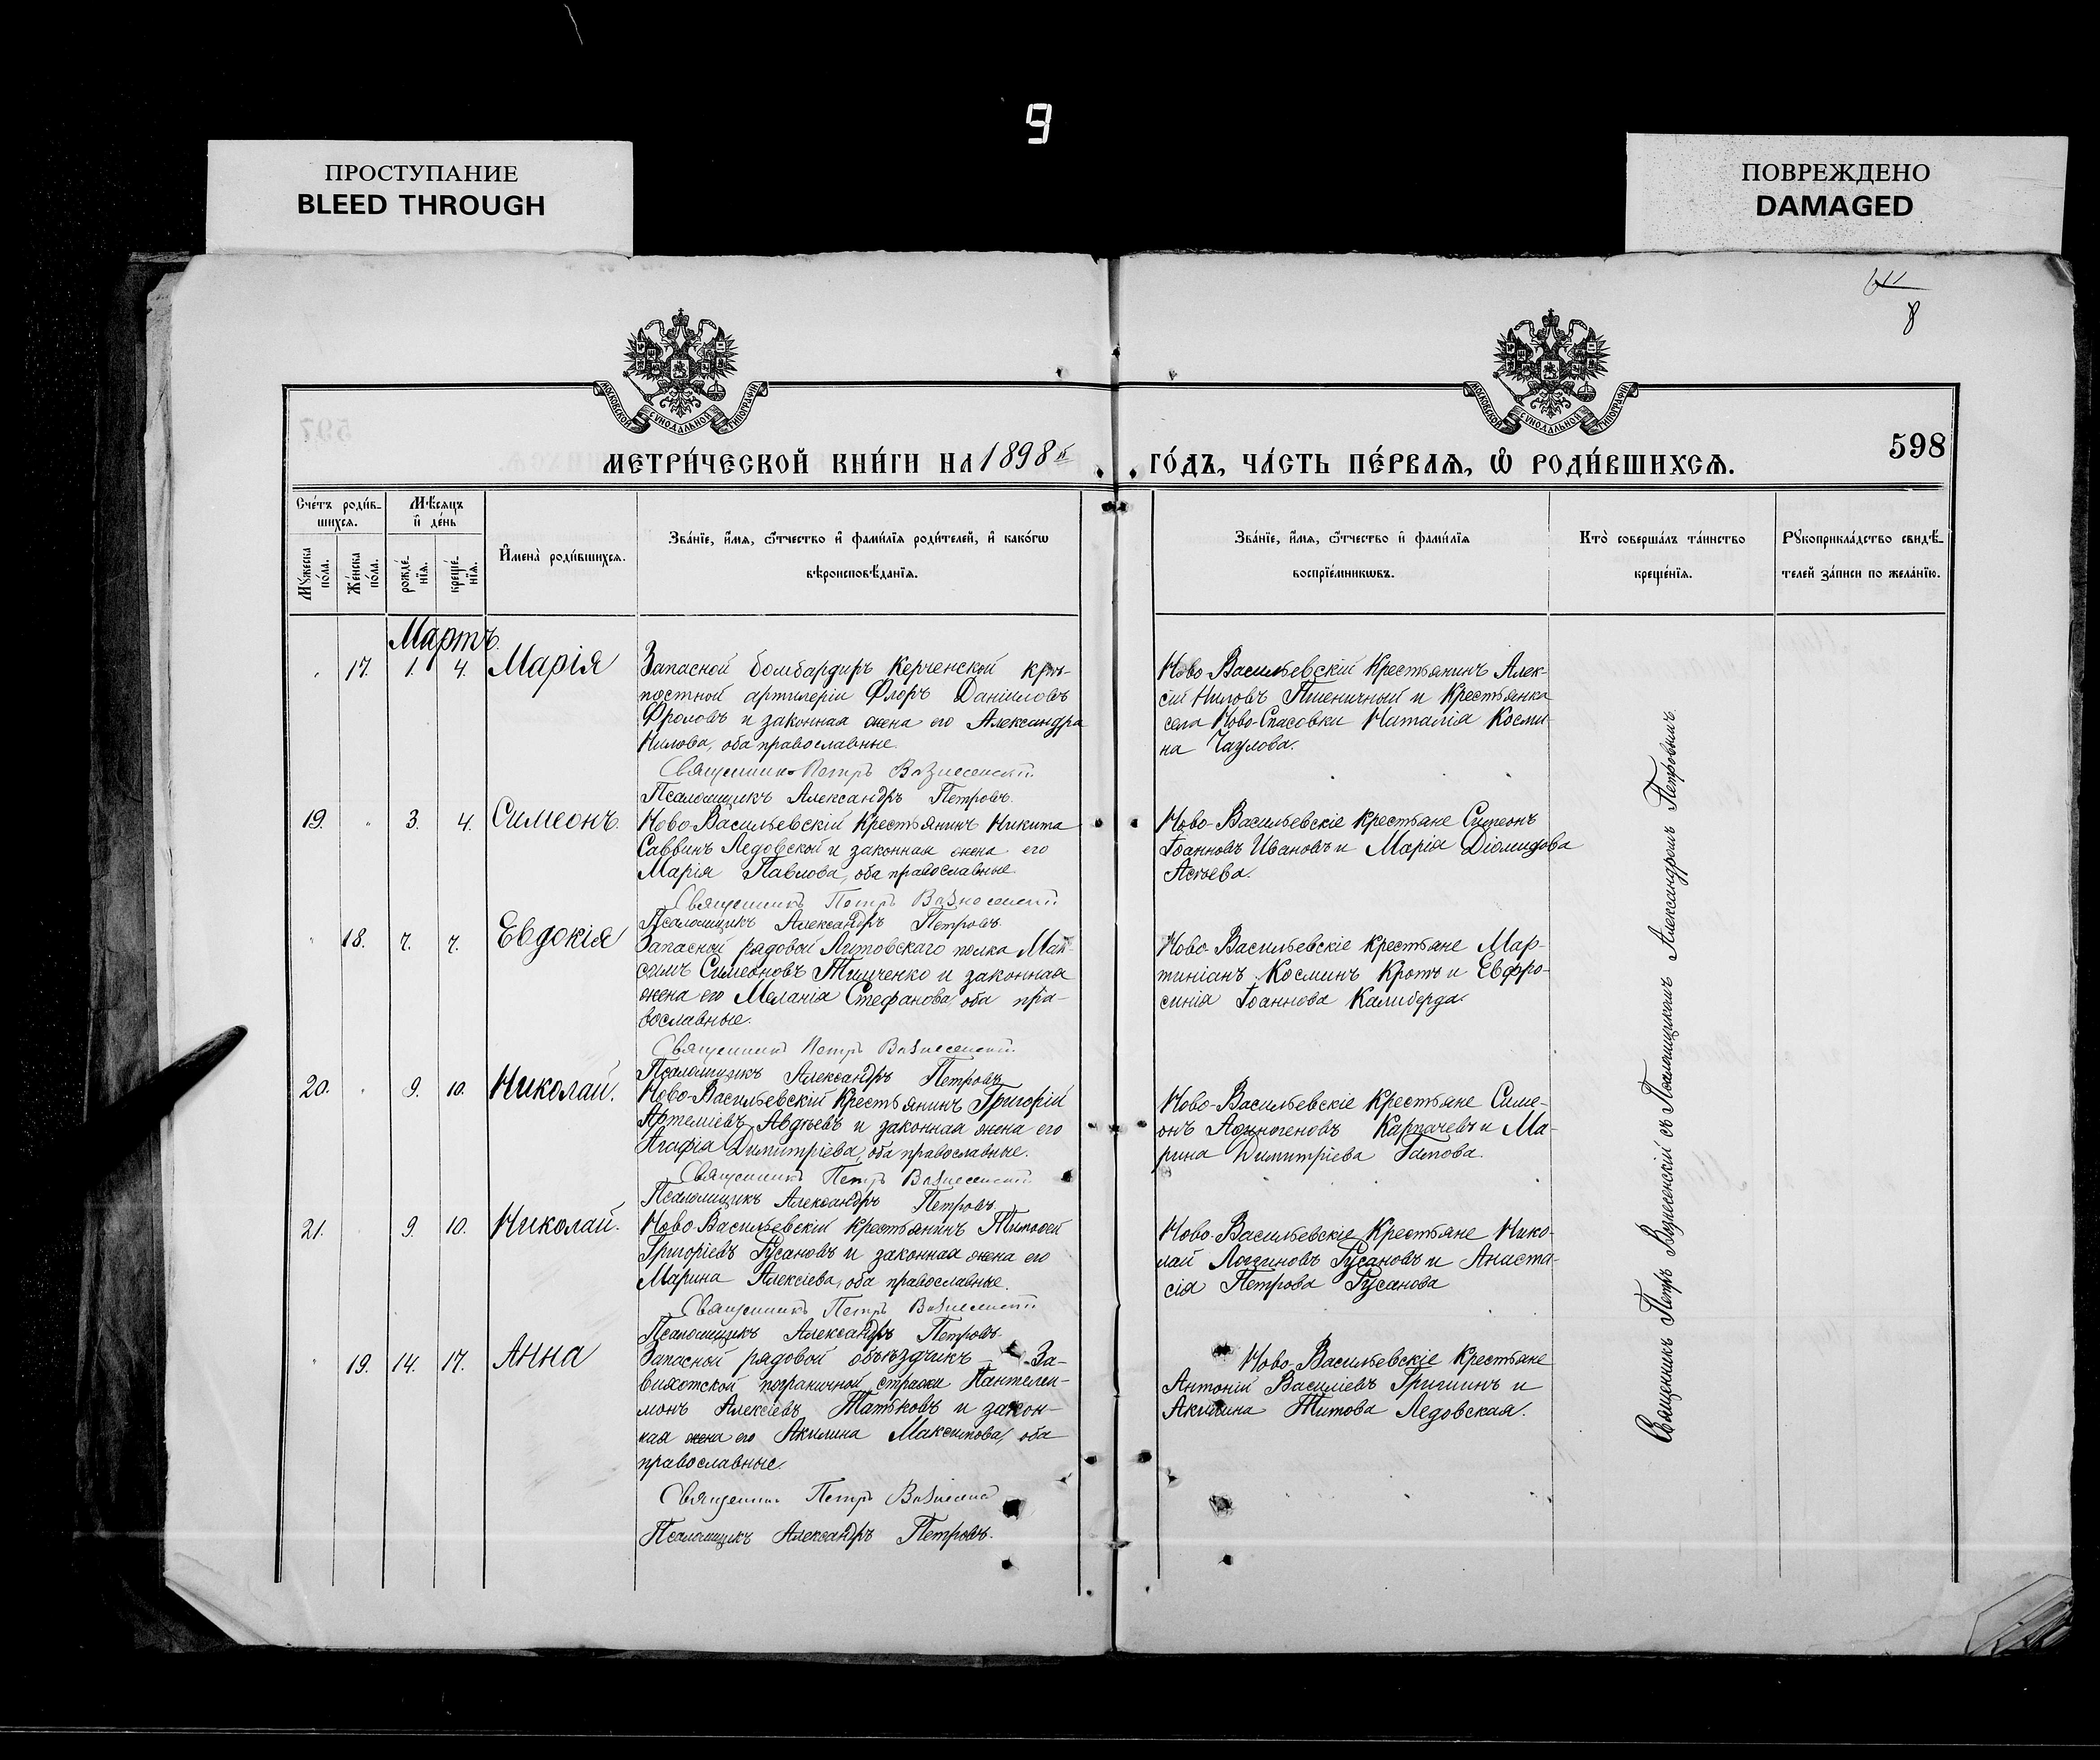 9
ПРОСТУПАНИЕ
BLEED THROUGH
ПОВРЕЖДЕНО
DAMAGED
8
МОСКОВСКОЙ СУНОДАЛЬНОЙ ТИПОГРАФІИ
МОСКОВСКОЙ СУНОДАЛЬНОЙ ТИПОГРАФІИ
598
МЕТРИ́ЧЕСКОЙ КНИ́ГИ НА 1898й ГО́ДЪ, ЧА́СТЬ ПЕ́РВАѦ, Ѡ҆ РОДИ́ВШИХСѦ.
Сче́тъ роди́в-
шихсѧ.
Мѣ́сѧцъ
и҆ де́нь
Мꙋ́жеска
по́ла.
Же́нска
по́ла.
рожде́-
нїѧ.
креще́-
нїѧ.
И҆мена̀ роди́вшихсѧ.
Зва́нїе, и҆́мѧ, ѻ҆́тчество и҆ фами́лїѧ роди́телей, и҆ како́гѡ
вѣроисповѣ́данїѧ.
Зва́нїе, и҆́мѧ, ѻ҆́тчество и҆ фами́лїѧ
воспрїе́мникѡвъ.
Кто̀ соверша́лъ та́инство
креще́нїѧ.
Рꙋкоприкла́дство свидѣ́-
телей за́писи по жела́нїю.
Мартъ.
17. 1. 4. Марія
Запасной бомбардиръ Керченской крѣ-
постной артилеріи Флоръ Даніиловъ
Фроловъ и законная жена его Александра
Нилова, оба православные.
Священникъ Петръ Вознесенскій
Псаломщикъ Александръ Петровъ.
Ново-Васильевскій Крестьянинъ Алек-
сій Ниловъ Пшеничный и Крестьянка
села Ново-Спасовки Наталія Косми-
на Чаулова.
19. " 3. 4. Симеонъ.
Ново-Васильевскій Крестьянинъ Никита
Саввинъ Ледовской и законная жена его
Марія Павлова, оба православные.
Священникъ Петръ Вознесенскій
Псаломщикъ Александръ Петровъ.
Ново-Васильевскіе крестьяне Симеонъ
Іоанновъ Ивановъ и Марія Діомидова
Асѣева.
" 18. 7. 7. Евдокія
Запасной рядовой Литовскаго полка Мак-
симъ Симеоновъ Тищенко и законная
жена его Меланія Стефанова, оба пра-
вославные.
Священникъ Петръ Вознесенскій
Псаломщикъ Александръ Петровъ
Ново-Васильевскіе крестьяне Мар-
тиніанъ Косминъ Кротъ и Евфро-
синія Іоаннова Калиберда.
20. " 9. 10. Николай.
Ново-Васильевскій Крестьянинъ Григорій
Артеміевъ Авдѣевъ и законная жена его
Агафія Димитріева, оба православные.
Священникъ Петръ Вознесенскій
Псаломщикъ Александръ Петровъ
Ново-Васильевскіе Крестьяне Симе-
онъ Аѳиногеновъ Карпачевъ и Ма-
рина Димитріева Гапова.
21. 9. 10. Николай.
Ново-Васильевскій крестьянинъ Тимоѳей
Григоріевъ Гусановъ и законная жена его
Марина Алексіева, оба православные.
Священникъ Петръ Вознесенскій
Псаломщикъ Александръ Петровъ.
Ново-Васильевскіе Крестьяне Нико-
лай Логгиновъ Гусановъ и Анаста-
сія Петрова Гусанова
" 19. 14. 17. Анна
Запасной рядовой объѣздчикъ За-
вихотской пограничной стражи Пантелеи-
монъ Алексіевъ Татьковъ и закон-
ная жена его Акилина Максимова, оба
православные.
Священникъ Петръ Вознесенскій
Псаломщикъ Александръ Петровъ.
Ново-Васильевскіе Крестьяне
Антоній Василіевъ Гришинъ и
Акилина Титова Ледовская.
Священникъ Петръ Вознесенскій съ Псаломщикомъ Александромъ Петровымъ.